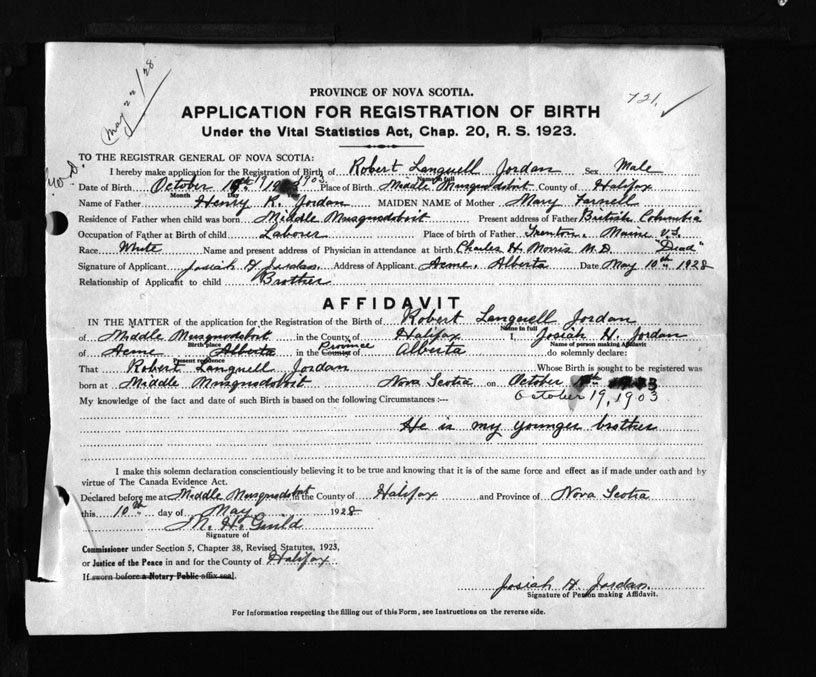 May 22/28
721 ✓
PROVINCE OF NOVA SCOTIA.
APPLICATION FOR REGISTRATION OF BIRTH
Under the Vital Statistics Act, Chap. 20, R. S. 1923.
TO THE REGISTRAR GENERAL OF NOVA SCOTIA:
I hereby make application for the Registration of Birth of Robert Langwell Jordan Sex Male
Name in full
Date of Birth October 19 1903 Place of Birth Middle Musquodoboit County of Halifax
Month Day
Name of Father Henry K. Jordan MAIDEN NAME of Mother Mary Farnell
Residence of Father when child was born Middle Musquodoboit Present address of Father British Columbia
Occupation of Father at Birth of child Laborer Place of birth of Father Trenton, Maine U.S.
Race White Name and present address of Physician in attendance at birth Charles H. Morris M.D. "Dead"
Signature of Applicant Josiah H. Jordan Address of Applicant Acme, Alberta Date May 10th 1928
Relationship of Applicant to child Brother
AFFIDAVIT
IN THE MATTER of the application for the Registration of the Birth of Robert Langwell Jordan
Name in full
of Middle Musquodoboit in the County of Halifax I, Josiah H. Jordan
Birth place Name of person making Affidavit
of Acme Alberta in the County of Province Alberta do solemnly declare:
Present residence
That Robert Langwell Jordan Whose Birth is sought to be registered was
born at Middle Musquodoboit Nova Scotia on October
October 19, 1903
My knowledge of the fact and date of such Birth is based on the following Circumstances:—
He is my younger brother
I make this solemn declaration conscientiously believing it to be true and knowing that it is of the same force and effect as if made under oath and by
virtue of The Canada Evidence Act.
Declared before me at Middle Musquodoboit in the County of Halifax and Province of Nova Scotia
this 10th day of May 1928
M. H. Guild
Signature of
Commissioner under Section 5, Chapter 38, Revised Statutes, 1923,
or Justice of the Peace in and for the County of Halifax
If sworn before a Notary Public affix seal.
Josiah H. Jordan
Signature of Person making Affidavit.
For Information respecting the filling out of this Form, see Instructions on the reverse side.